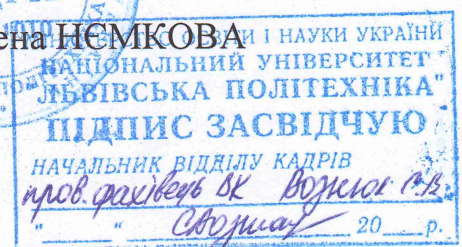 ена НЄМКОВА
І НАУКИ УКРАЇНИ
НАЦІОНАЛЬНИЙ УНІВЕРСИТЕТ
ЛЬВІВСЬКА ПОЛІТЕХНІКА"
ПІДПИС ЗАСВІДЧУЮ
НАЧАЛЬНИК ВІДДІЛУ КАДРІВ
пров. фахівець ВК Вознюк С.В.
" " 20 р.